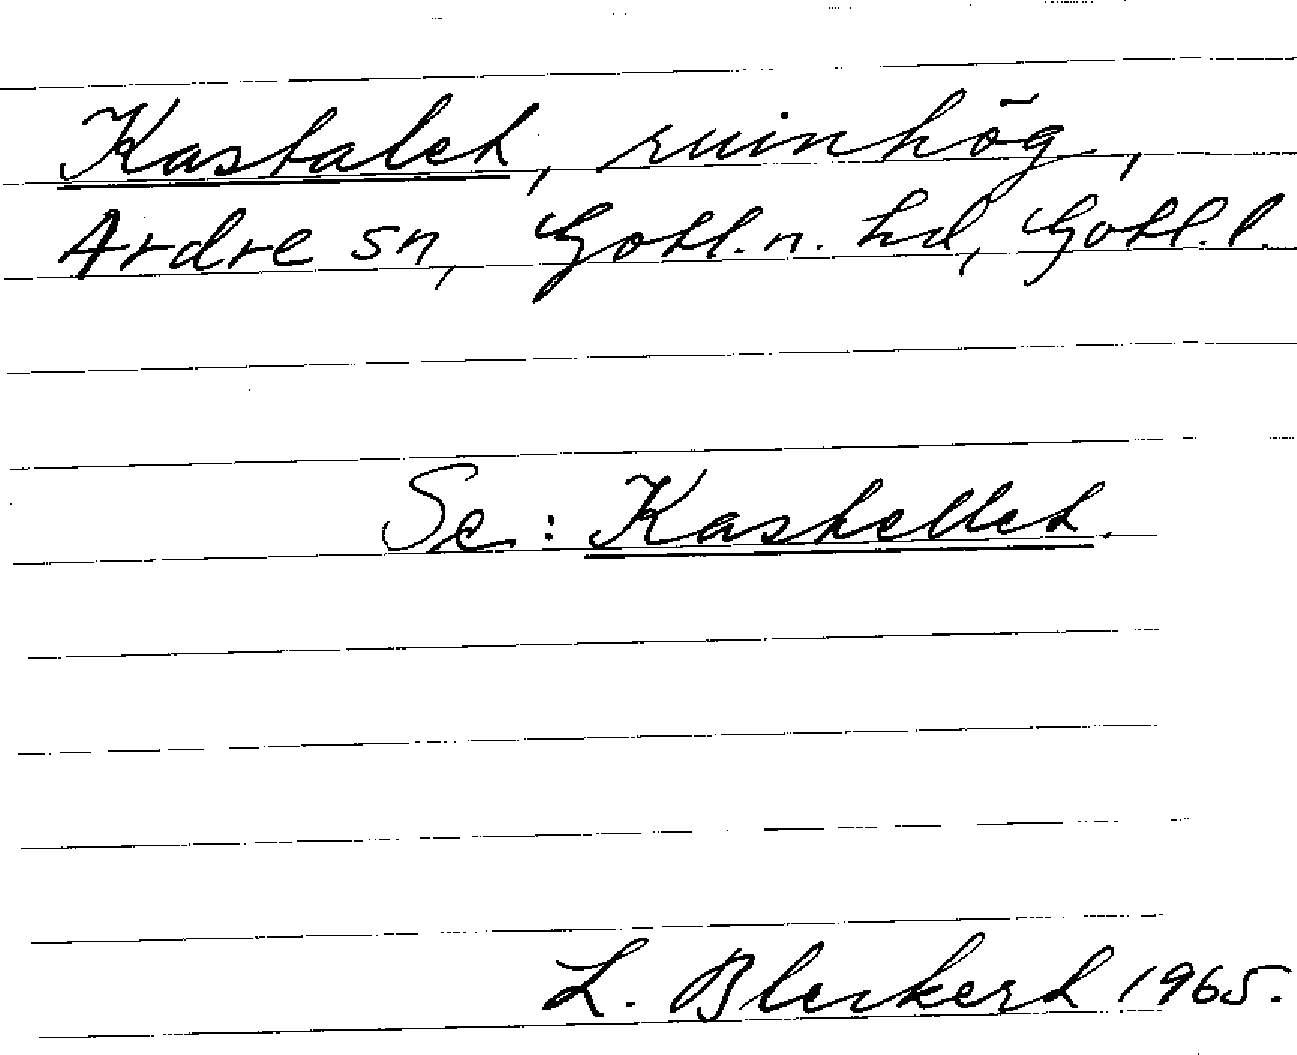 Kastalet, ruinhög,
Ardre sn, Gotl. n. hd, Gotl. l.
Se: Kastellet.
L. Bleckert 1965.